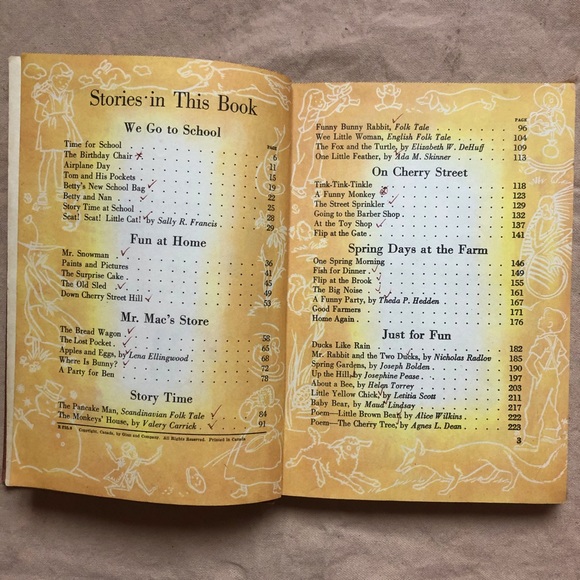 Stories in This Book
We Go to School
PAGE
Time for School 6
The Birthday Chair 11
Airplane Day 15
Tom and His Pockets 19
Betty's New School Bag 22
Betty and Nan 25
Story Time at School 28
Scat! Scat! Little Cat! by Sally R. Francis 29
Fun at Home
Mr. Snowman 36
Paints and Pictures 41
The Surprise Cake 45
The Old Sled 49
Down Cherry Street Hill 53
Mr. Mac's Store
The Bread Wagon 58
The Lost Pocket 65
Apples and Eggs, by Lena Ellingwood 68
Where Is Bunny? 72
A Party for Ben 78
Story Time
The Pancake Man, Scandinavian Folk Tale 84
The Monkeys' House, by Valery Carrick 91
Copyright, Canada, by Ginn and Company. All Rights Reserved. Printed in Canada
PAGE
Funny Bunny Rabbit, Folk Tale 96
Wee Little Woman, English Folk Tale 104
The Fox and the Turtle, by Elizabeth W. DeHuff 109
One Little Feather, by Ada M. Skinner 113
On Cherry Street
Tink-Tink-Tinkle 118
A Funny Monkey 123
The Street Sprinkler 129
Going to the Barber Shop 132
At the Toy Shop 137
Flip at the Gate 141
Spring Days at the Farm
One Spring Morning 146
Fish for Dinner 149
Flip at the Brook 155
The Big Noise 161
A Funny Party, by Theda P. Hedden 167
Good Farmers 171
Home Again 176
Just for Fun
Ducks Like Rain 182
Mr. Rabbit and the Two Ducks, by Nicholas Radlov 185
Spring Gardens, by Joseph Bolden 201
Up the Hill, by Josephine Pease 203
About a Bee, by Helen Torrey 210
Little Yellow Chick, by Letitia Scott 211
Baby Bear, by Maud Lindsay 217
Poem—Little Brown Bear, by Alice Wilkins 222
Poem—The Cherry Tree, by Agnes L. Dean 223
3